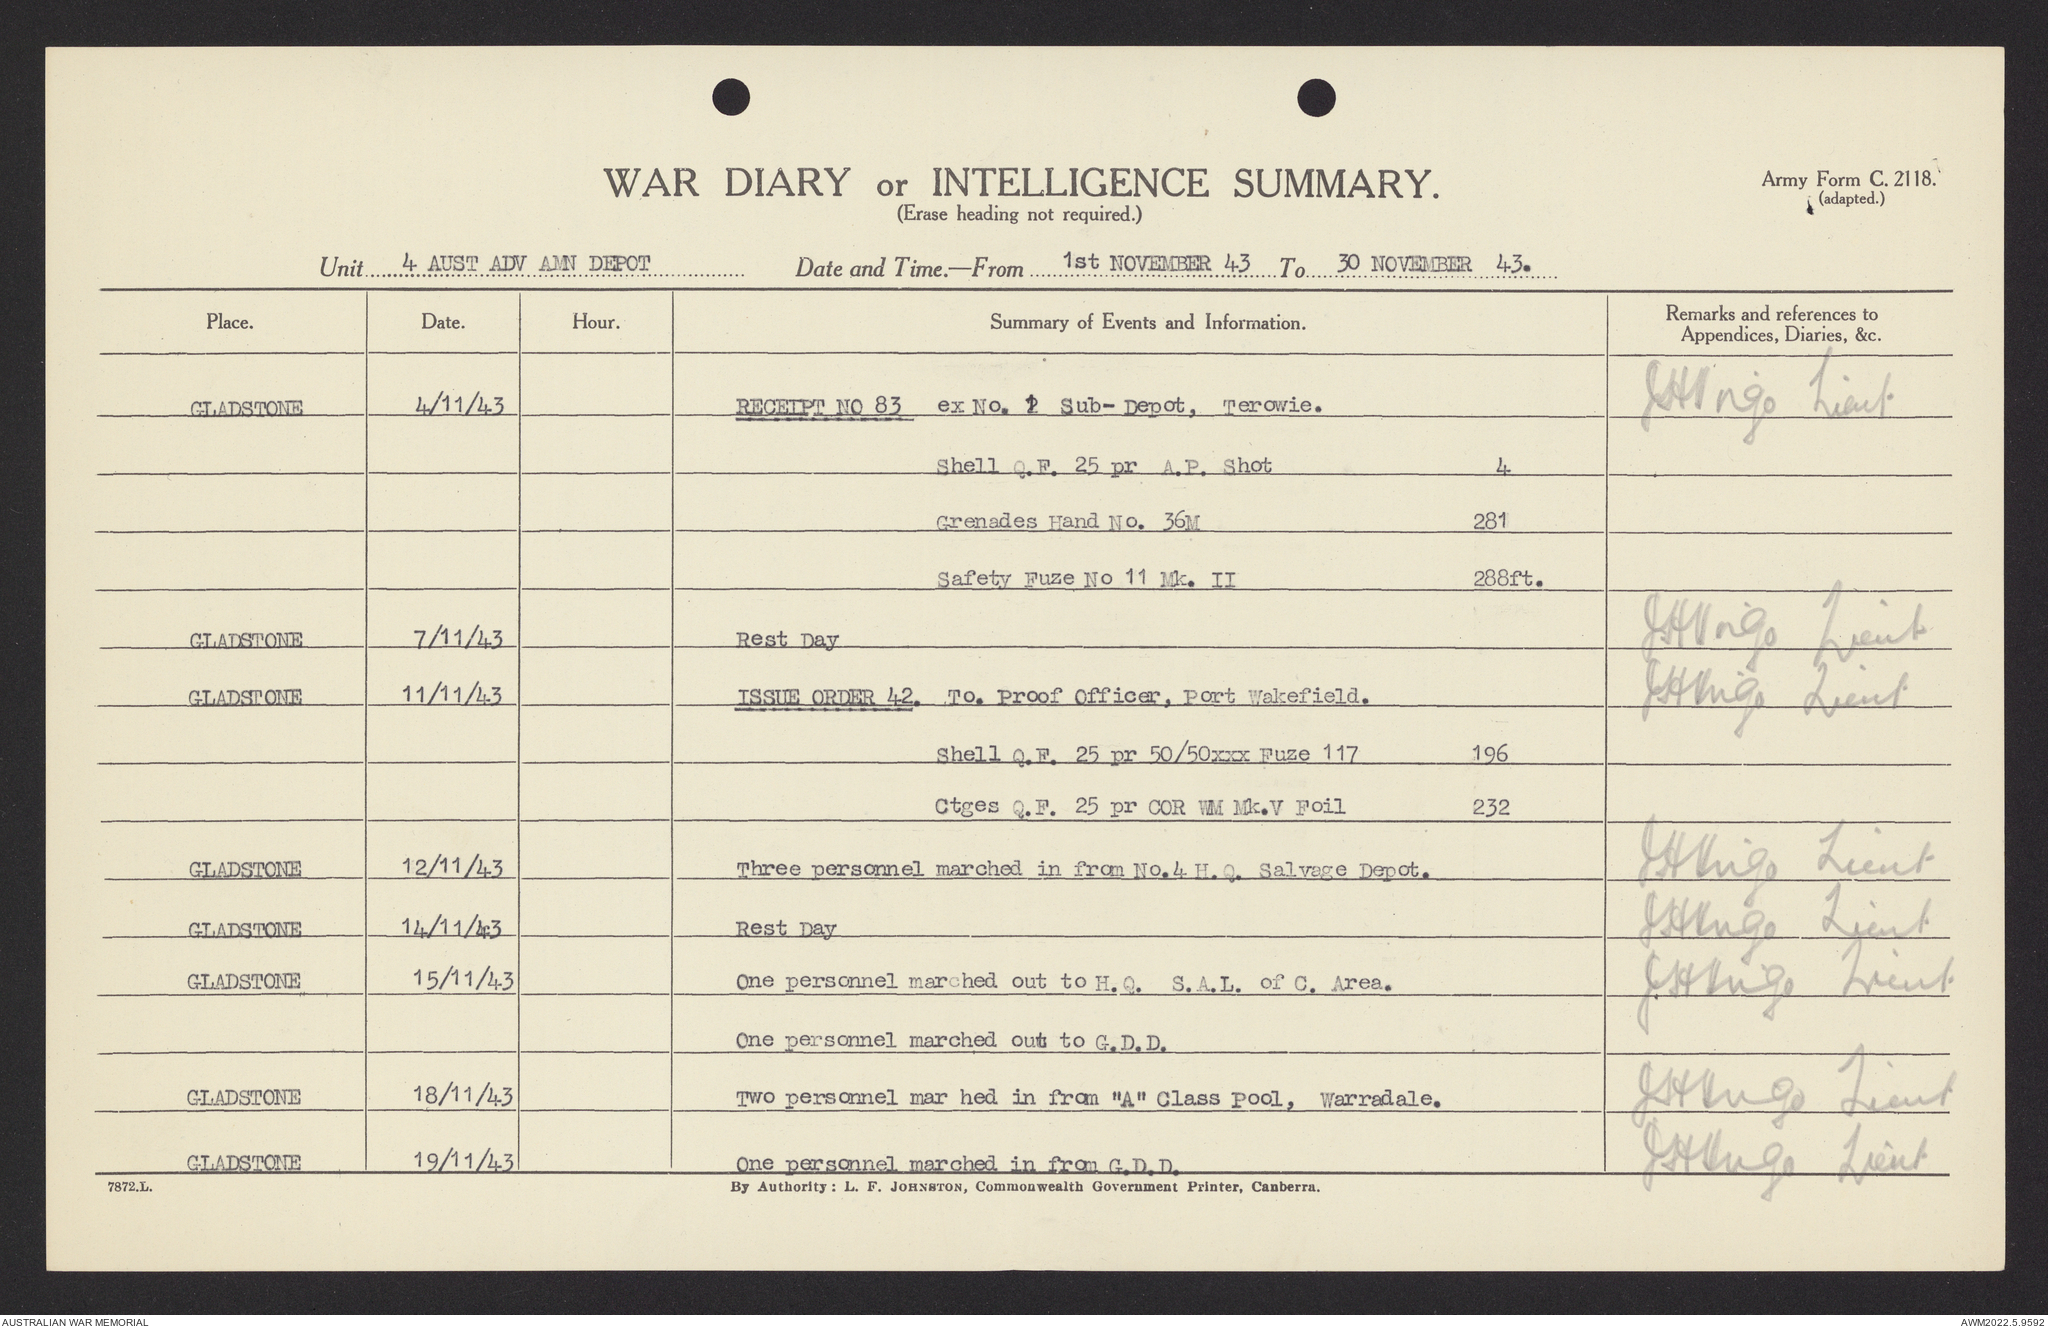 WAR DIARY or INTELLIGENCE SUMMARY.
(Erase heading not required.)
Army Form C. 2118.
(adapted.)
Unit 4 AUST ADV AMN DEPOT Date and Time.—From 1st NOVEMBER 43 To 30 NOVEMBER 43.
Place. Date. Hour. Summary of Events and Information. Remarks and references to
Appendices, Diaries, &c.
GLADSTONE 4/11/43 RECEIPT NO 83 ex No. 2 Sub-Depot, Terowie. Lieut
Shell Q.F. 25 pr A.P. Shot 4
Grenades Hand No. 36M 281
Safety Fuze No 11 Mk. II 288ft.
GLADSTONE 7/11/43 Rest Day Lieut
GLADSTONE 11/11/43 ISSUE ORDER 42. To. Proof Officer, Port Wakefield. Lieut
Shell Q.F. 25 pr 50/50xxx Fuze 117 196
Ctges Q.F. 25 pr COR WM Mk.V Foil 232
GLADSTONE 12/11/43 Three personnel marched in from No.4 H.Q. Salvage Depot. Lieut
GLADSTONE 14/11/43 Rest Day Lieut
GLADSTONE 15/11/43 One personnel marched out to H.Q. S.A.L. of C. Area. Lieut
One personnel marched out to G.D.D.
GLADSTONE 18/11/43 Two personnel mar hed in from "A" Class Pool, Warradale. Lieut
GLADSTONE 19/11/43 One personnel marched in from G.D.D. Lieut
7872.L. By Authority: L. F. JOHNSTON, Commonwealth Government Printer, Canberra.
AUSTRALIAN WAR MEMORIAL AWM2022.5.9592